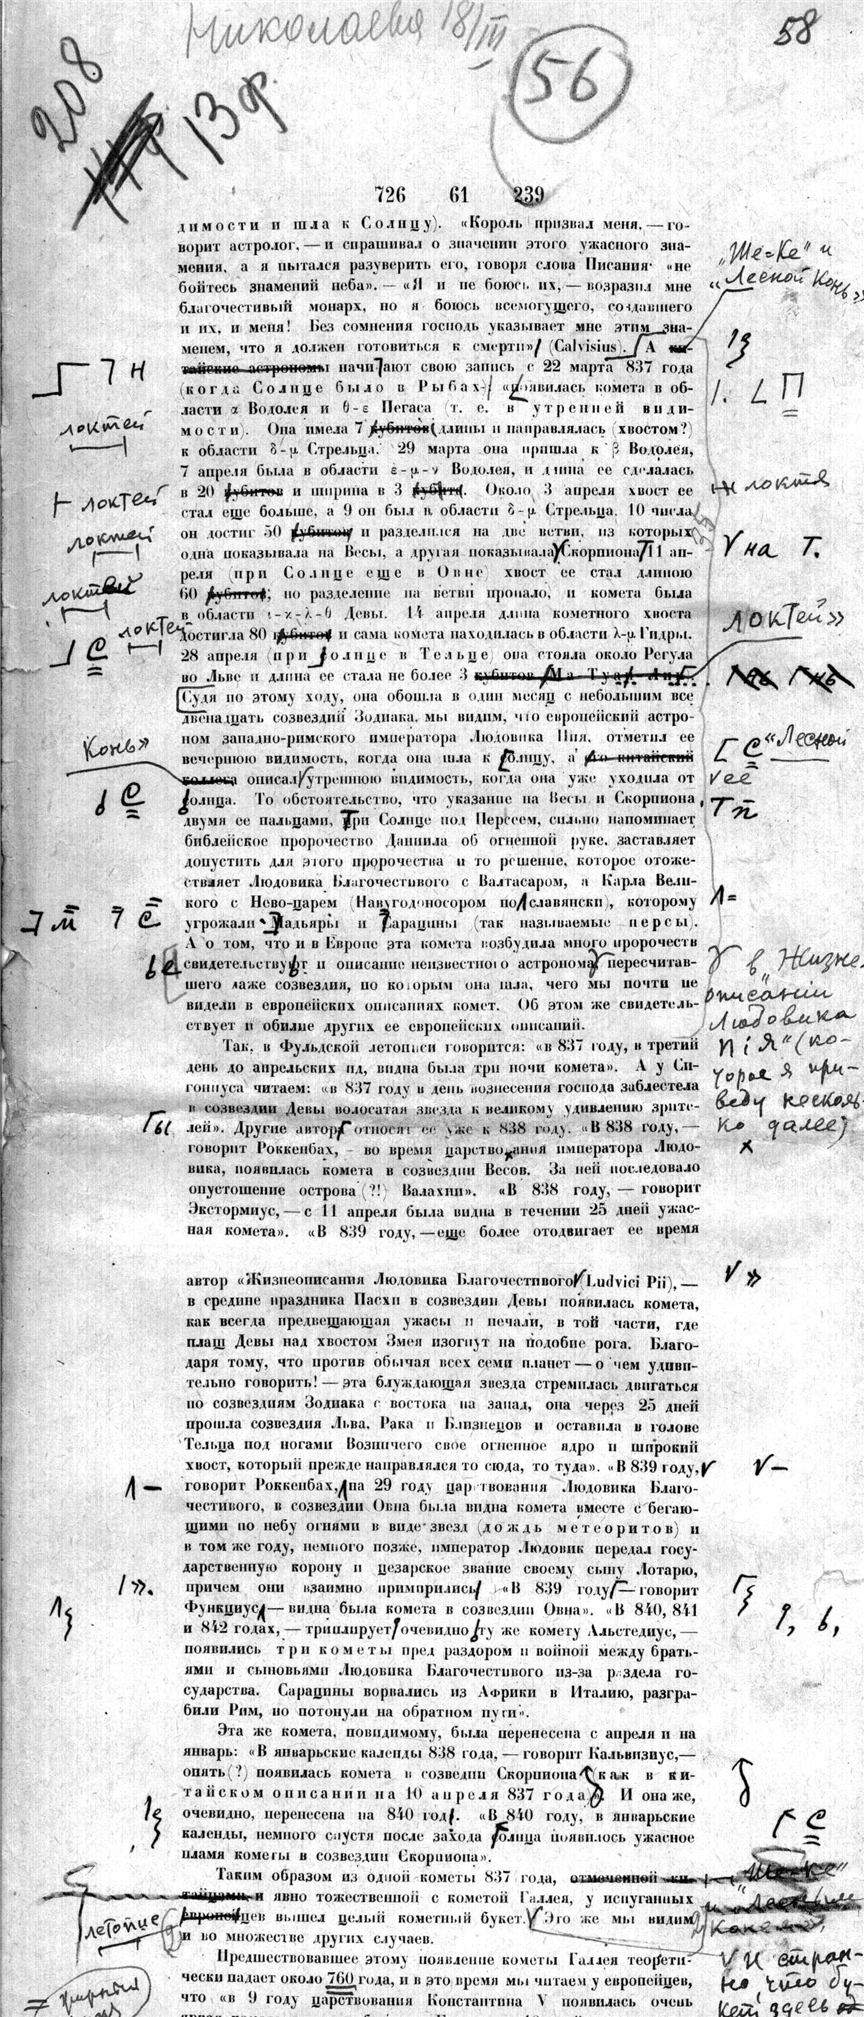 Николаева 18/III
58
56
208
13 ф.
726 61 239
димости и шла к Солнцу). «Король призвал меня, — го-
ворит астролог, — и спрашивал о значении этого ужасного зна-
мения, а я пытался разуверить его, говоря слова Писания: «не
бойтесь знамений неба». — «Я и не боюсь их, — возразил мне
„Ше-Ке" и
«Лесной Конь»
благочестивый монарх, но я боюсь всемогущего, создавшего
и их, и меня! Без сомнения господь указывает мне этим зна-
менем, что я должен готовиться к смерти» (Calvisius). А ки-
тайские астрономы начинают свою запись с 22 марта 837 года
(когда Солнце было в Рыбах) «появилась комета в об-
ласти α Водолея и θ-ε Пегаса (т. е. в утренней види-
мости). Она имела 7 кубитов длины и направлялась (хвостом?)
локтей
к области δ-μ Стрельца. 29 марта она пришла к β Водолея,
7 апреля была в области ε-μ-ν Водолея, и длина ее сделалась
в 20 кубитов и ширина в 3 кубита. Около 3 апреля хвост ее
локтей
локтя
стал еще больше, а 9 он был в области δ-μ Стрельца. 10 числа
он достиг 50 кубитов и разделился на две ветви, из которых
локтей
одна показывала на Весы, а другая показывала Скорпиона 11 ап-
на
реля (при Солнце еще в Овне) хвост ее стал длиною
60 кубитов; но разделение на ветви пропало, и комета была
локтей
в области ι-κ-λ-θ Девы. 14 апреля длина кометного хвоста
достигла 80 кубитов и сама комета находилась в области λ-μ Гидры.
локтей
локтей»
28 апреля (при Солнце в Тельце) она стояла около Регула
во Льве и длина ее стала не более 3 кубитов
Судя по этому ходу, она обошла в один месяц с небольшим все
двенадцать созвездий Зодиака. мы видим, что европейский астро-
ном западно-римского императора Людовика Пия, отметил ее
вечернюю видимость, когда она шла к Солнцу, а его китайский
«Лесной
Конь»
коллега описал утреннюю видимость, когда она уже уходила от
ее
Солнца. То обстоятельство, что указание на Весы и Скорпиона
двумя ее пальцами, при Солнце под Персеем, сильно напоминает
библейское пророчество Даниила об огненной руке, заставляет
допустить для этого пророчества и то решение, которое отоже-
ствляет Людовика Благочестивого с Валтасаром, а Карла Вели-
кого с Нево-царем (Навуходоносором по славянски), которому
угрожали Мадьяры и Сарацины (так называемые персы).
А о том, что и в Европе эта комета возбудила много пророчеств
свидетельствует и описание неизвестного астронома пересчитав-
шего даже созвездия, по которым она шла, чего мы почти не
видели в европейских описаниях комет. Об этом же свидетель-
ствует и обилие других ее европейских описаний.
в „Жизне-
описании
Людовика
Пия" (ко-
торое я при-
веду несколь-
ко далее)
Так, в Фульдской летописи говорится: «в 837 году, в третий
день до апрельских ид, видна была три ночи комета». А у Си-
гониуса читаем: «в 837 году в день вознесения господа заблестела
в созвездии Девы волосатая звезда к великому удивлению зрите-
лей». Другие авторы относят ее уже к 838 году. «В 838 году, —
говорит Роккенбах, — во время царствования императора Людо-
вика, появилась комета в созвездии Весов. За ней последовало
опустошение острова (?!) Валахии». «В 838 году, — говорит
Экстормиус, — с 11 апреля была видна в течении 25 дней ужас-
ная комета». «В 839 году, — еще более отодвигает ее время
автор «Жизнеописания Людовика Благочестивого (Ludvici Pii), —
в средине праздника Пасхи в созвездии Девы появилась комета,
как всегда предвещающая ужасы и печали, в той части, где
плащ Девы над хвостом Змея изогнут на подобие рога. Благо-
даря тому, что против обычая всех семи планет — о чем удиви-
тельно говорить! — эта блуждающая звезда стремилась двигаться
по созвездиям Зодиака с востока на запад, она через 25 дней
прошла созвездия Льва, Рака и Близнецов и оставила в голове
Тельца под ногами Возничего свое огненное ядро и широкий
хвост, который прежде направлялся то сюда, то туда». «В 839 году,
говорит Роккенбах, на 29 году царствования Людовика Благо-
честивого, в созвездии Овна была видна комета вместе с бегаю-
щими по небу огнями в виде звезд (дождь метеоритов) и
в том же году, немного позже, император Людовик передал госу-
дарственную корону и цезарское звание своему сыну Лотарю,
причем они взаимно примирились «В 839 году — говорит
Функциус — видна была комета в созвездии Овна». «В 840, 841
и 842 годах, — триплирует очевидно ту же комету Альстедиус, —
появились три кометы пред раздором и войной между брать-
ями и сыновьями Людовика Благочестивого из-за раздела го-
сударства. Сарацины ворвались из Африки в Италию, разгра-
били Рим, но потонули на обратном пути».
Эта же комета, повидимому, была перенесена с апреля и на
январь: «В январьские календы 838 года, — говорит Кальвизиус, —
опять (?) появилась комета в созведии Скорпиона (как в ки-
тайском описании на 10 апреля 837 года). И она же,
очевидно, перенесена на 840 год. «В 840 году, в январьские
календы, немного спустя после захода Солнца появилось ужасное
пламя кометы в созвездии Скорпиона».
Таким образом из одной кометы 837 года, отмеченной ки-
тайцами и явно тожественной с кометой Галлея, у испуганных
европейцев вышел целый кометный букет. Это же мы видим
летопис
и во множестве других случаев.
Предшествовавшее этому появление кометы Галлея теорети-
чески падает около 760 года, и в это время мы читаем у европейцев,
И стран-
но, что бу-
кет здесь
что «в 9 году царствования Константина V появилась очень